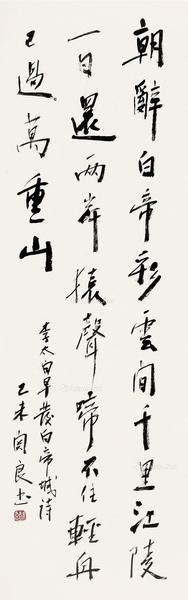 朝辭白帝彩雲間千里江陵
一日還兩岸猿聲啼不住輕舟
已過萬重山
李太白早發白帝城詩
乙未關良書